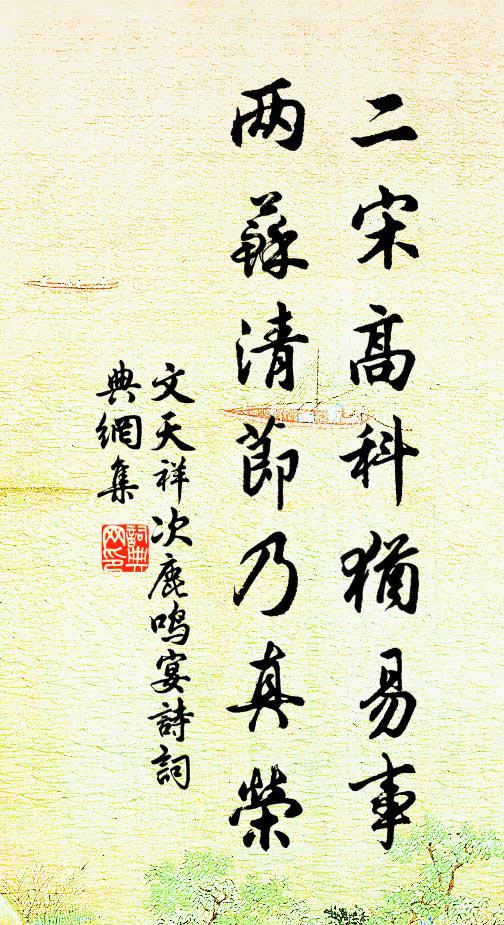 二宋高科猶易事
两蘇清節乃真榮
文天祥次鹿鳴宴詩詞
典網集
詞典
网印